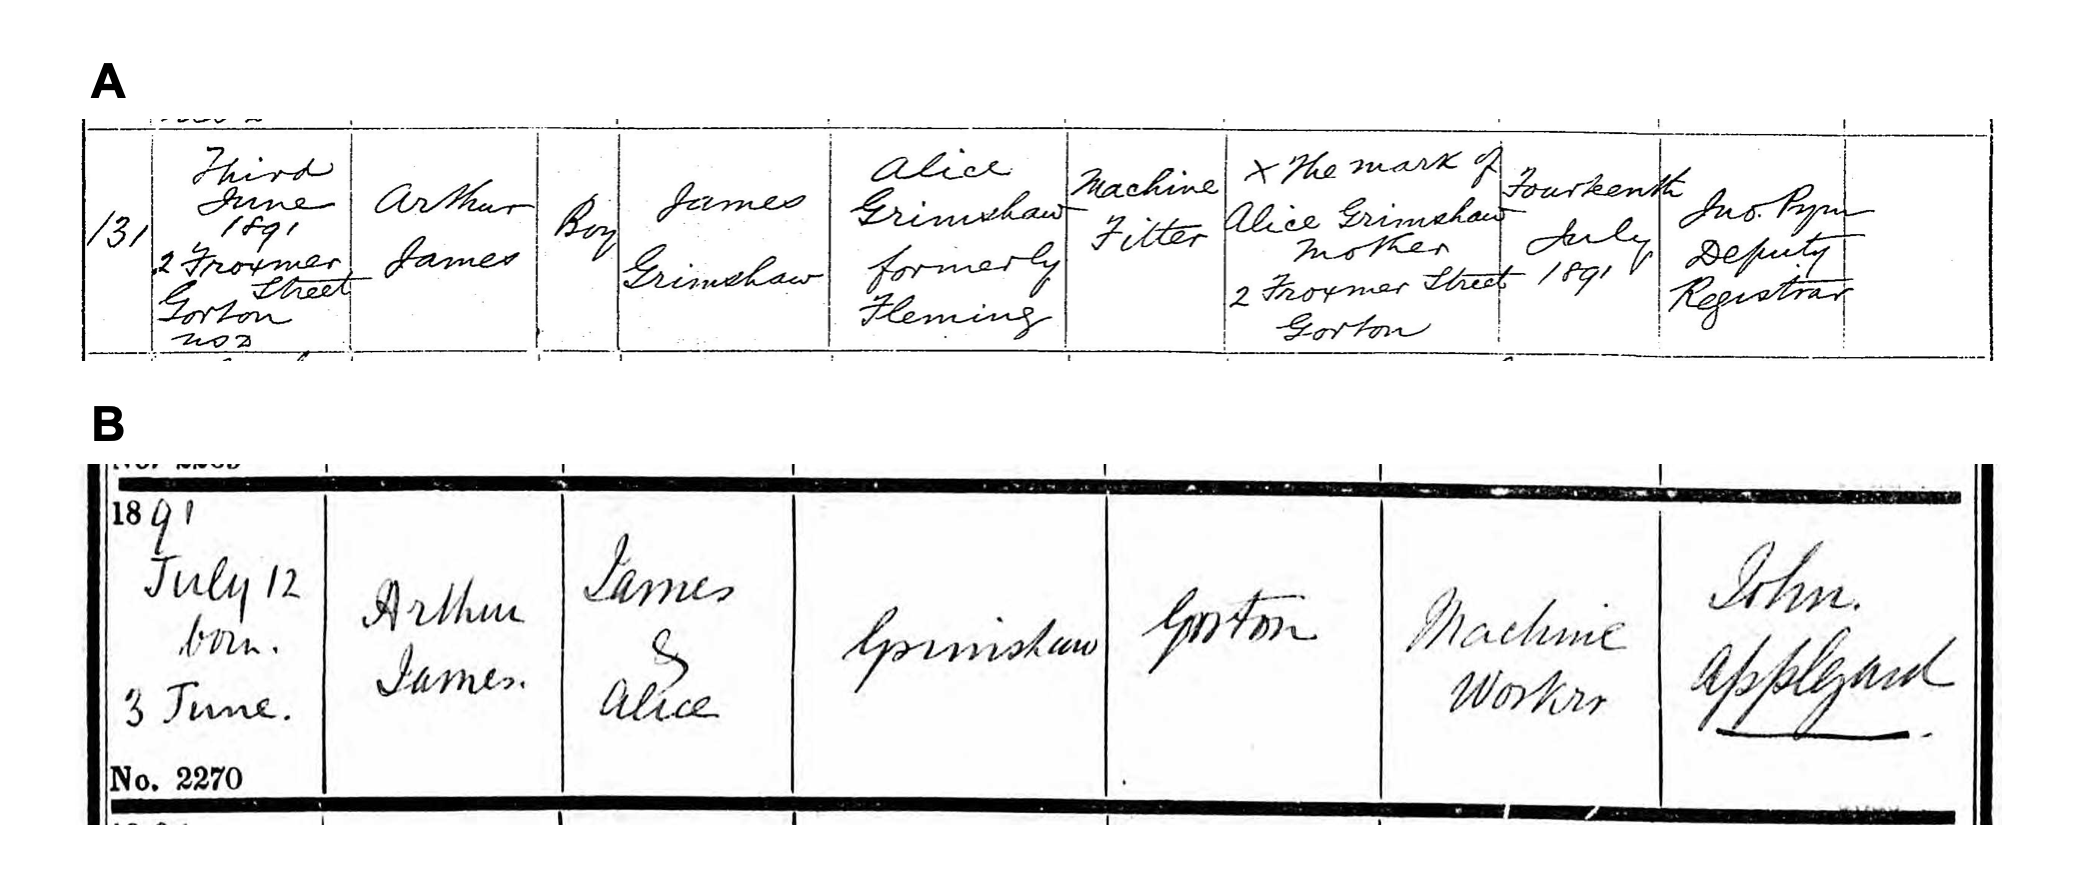 A
131
Third
June
1891
2 Froxmer
Street
Gorton
USD
Arthur
James
Boy
James
Grimshaw
Alice
Grimshaw
formerly
Fleming
Machine
Fitter
X The mark of
Alice Grimshaw
Mother
2 Froxmer Street
Gorton
Fourteenth
July
1891
Jno. Pym
Deputy
Registrar
B
1891
July 12
born.
3 June.
No. 2270
Arthur
James.
James
&
Alice
Grimshaw
Gorton
Machine
Workr
John.
Appleyard